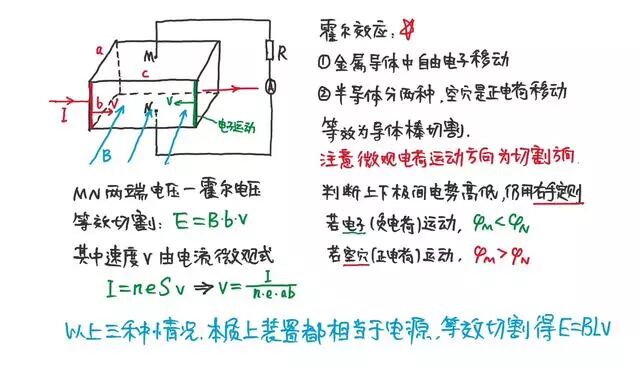 a
M
c
R
A
I
b
v
N
v
B
电子运动
霍尔效应:
①金属导体中自由电子移动
②半导体分两种,空穴是正电荷移动
等效为导体棒切割.
注意微观电荷运动方向为切割方向.
MN两端电压—霍尔电压
等效切割: E=B·b·v
其中速度v由电流微观式
I=neSv ⇒ v=I/(n·e·ab)
判断上下极间电势高低,仍用右手定则
若电子(负电荷)运动, φM<φN
若空穴(正电荷)运动, φM>φN
以上三种情况,本质上装置都相当于电源,等效切割得E=BLv